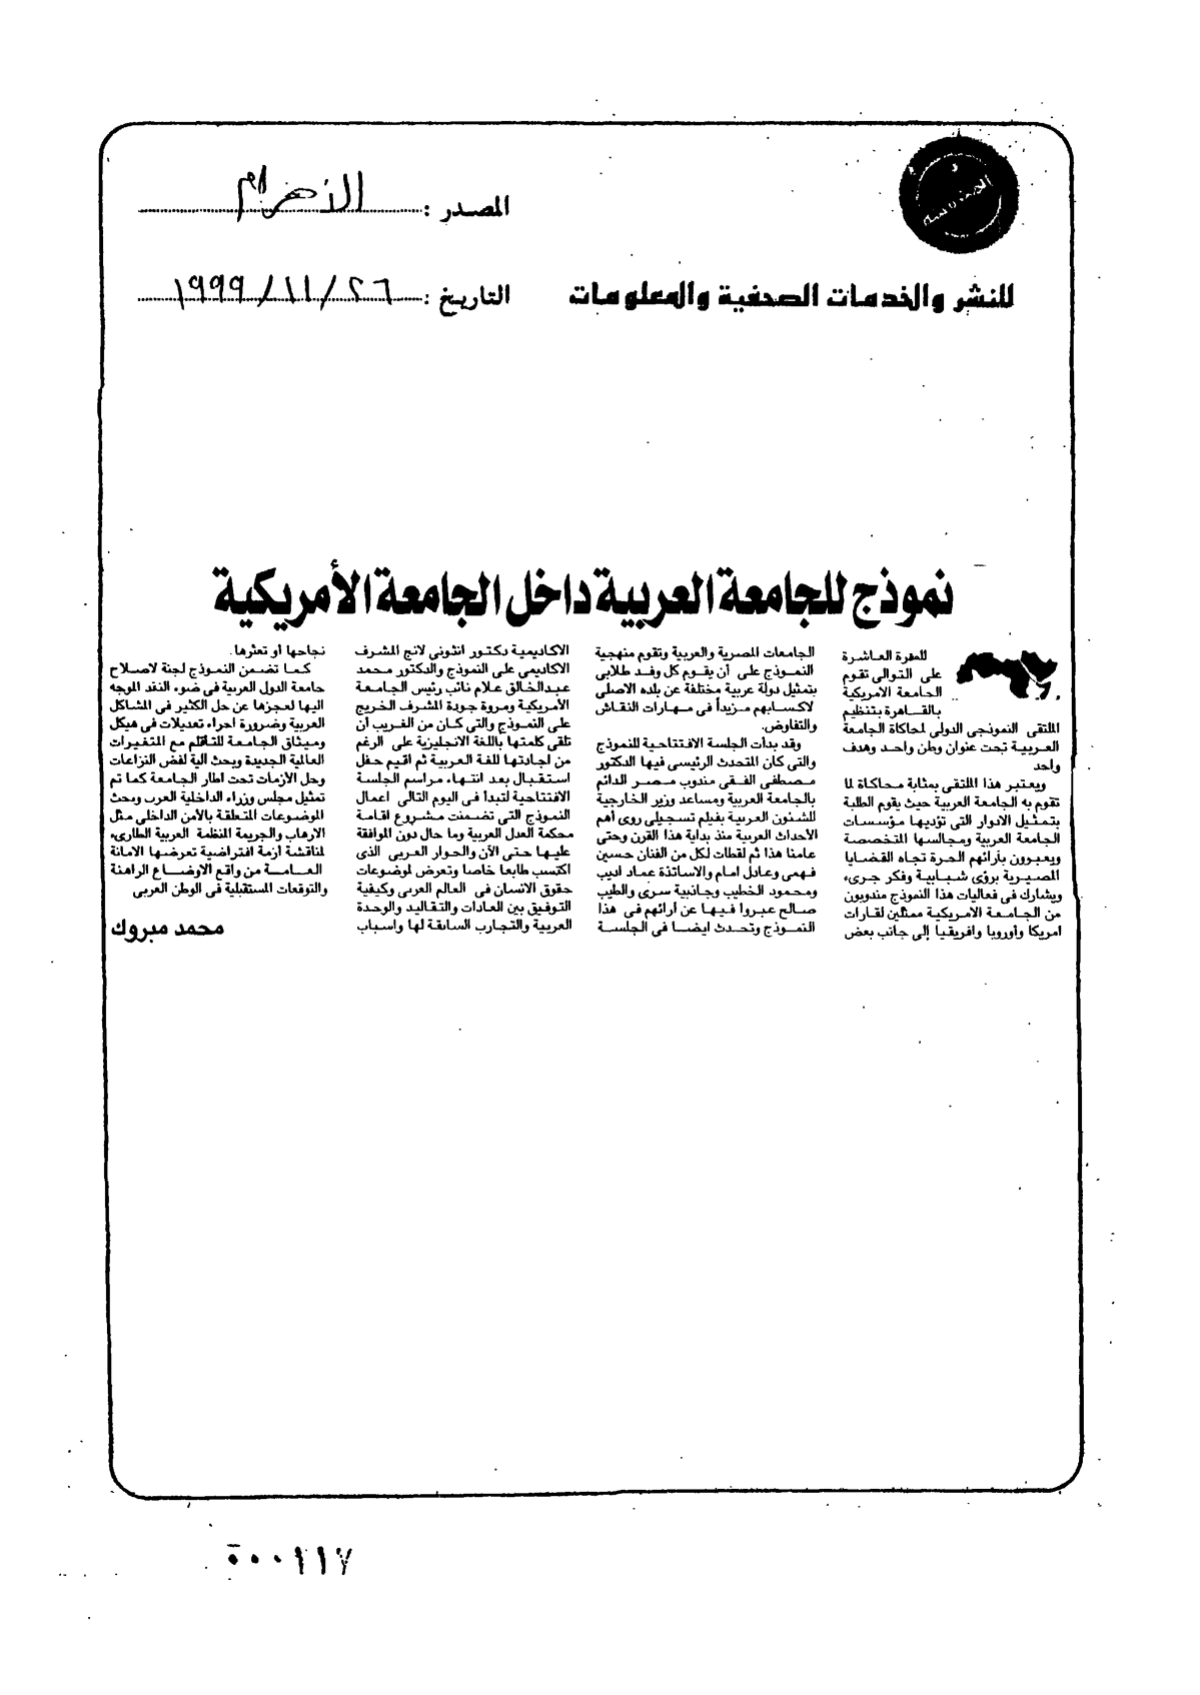 المصدر : الأهرام
للنشر والخدمات الصحفية والمعلومات
التاريخ : ٢٦ / ١١ / ١٩٩٩
نموذج للجامعة العربية داخل الجامعة الأمريكية
للمرة العاشرة
على التوالى تقوم
الجامعة الامريكية
بالقاهرة بتنظيم
الملتقى النموذجى الدولى لمحاكاة الجامعة
العربية تحت عنوان وطن واحد وهدف
واحد
ويعتبر هذا الملتقى بمثابة محاكاة لما
تقوم به الجامعة العربية حيث يقوم الطلبة
بتمثيل الادوار التى تؤديها مؤسسات
الجامعة العربية ومجالسها المتخصصة
ويعبرون بآرائهم الحرة تجاه القضايا
المصيرية برؤى شبابية وفكر جرىء
ويشارك فى فعاليات هذا النموذج مندوبون
من الجامعة الامريكية ممثلين لقارات
امريكا وأوروبا وافريقيا إلى جانب بعض
الجامعات المصرية والعربية وتقوم منهجية
النموذج على أن يقوم كل وفد طلابى
بتمثيل دولة عربية مختلفة عن بلده الاصلى
لاكسابهم مزيداً فى مهارات النقاش
والتفاوض.
وقد بدأت الجلسة الافتتاحية للنموذج
والتى كان المتحدث الرئيسى فيها الدكتور
مصطفى الفقى مندوب مصر الدائم
بالجامعة العربية ومساعد وزير الخارجية
للشئون العربية بفيلم تسجيلى روى أهم
الأحداث العربية منذ بداية هذا القرن وحتى
عامنا هذا ثم لقطات لكل من الفنان حسين
فهمى وعادل امام والاساتذة عماد اديب
ومحمود الخطيب وجاذبية سرى والطيب
صالح عبروا فيها عن آرائهم فى هذا
النموذج وتحدث ايضا فى الجلسة
الاكاديمية دكتور انتونى لانج المشرف
الاكاديمى على النموذج والدكتور محمد
عبدالخالق علام نائب رئيس الجامعة
الأمريكية ومروة جودة المشرف الخريج
على النموذج والتى كان من الغريب أن
تلقى كلمتها باللغة الانجليزية على الرغم
من اجادتها للغة العربية ثم اقيم حفل
استقبال بعد انتهاء مراسم الجلسة
الافتتاحية لتبدأ فى اليوم التالى اعمال
النموذج التى تضمنت مشروع اقامة
محكمة العدل العربية وما حال دون الموافقة
عليها حتى الآن والحوار العربى الذى
اكتسب طابعا خاصا وتعرض لموضوعات
حقوق الانسان فى العالم العربى وكيفية
التوفيق بين العادات والتقاليد والوحدة
العربية والتجارب السابقة لها واسباب
نجاحها أو تعثرها.
كما تضمن النموذج لجنة لاصلاح
جامعة الدول العربية فى ضوء النقد الموجه
اليها لعجزها عن حل الكثير فى المشاكل
العربية وضرورة اجراء تعديلات فى هيكل
وميثاق الجامعة للتأقلم مع المتغيرات
العالمية الجديدة وبحث آلية لفض النزاعات
وحل الأزمات تحت اطار الجامعة كما تم
تمثيل مجلس وزراء الداخلية العرب وبحث
الموضوعات المتعلقة بالأمن الداخلى مثل
الارهاب والجريمة المنظمة العربية الطارىء
لمناقشة أزمة افتراضية تعرضها الامانة
العامة من واقع الاوضاع الراهنة
والتوقعات المستقبلية فى الوطن العربى
محمد مبروك
٥٠٠١١٧